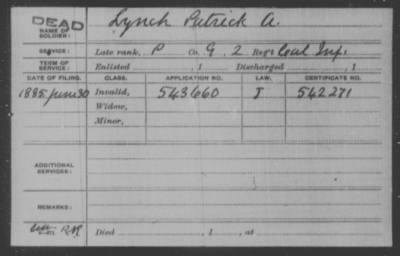 DEAD
NAME OF SOLDIER: Lynch Patrick A.
SERVICE: Late rank, P Co. G, 2 Reg't Cal Inf.
TERM OF SERVICE: Enlisted , 1 Discharged , 1
DATE OF FILING. CLASS. APPLICATION NO. LAW. CERTIFICATE NO.
1885 June 30 Invalid, 543660 J 542271
Widow,
Minor,
ADDITIONAL SERVICES:
REMARKS:
Died , 1 , at